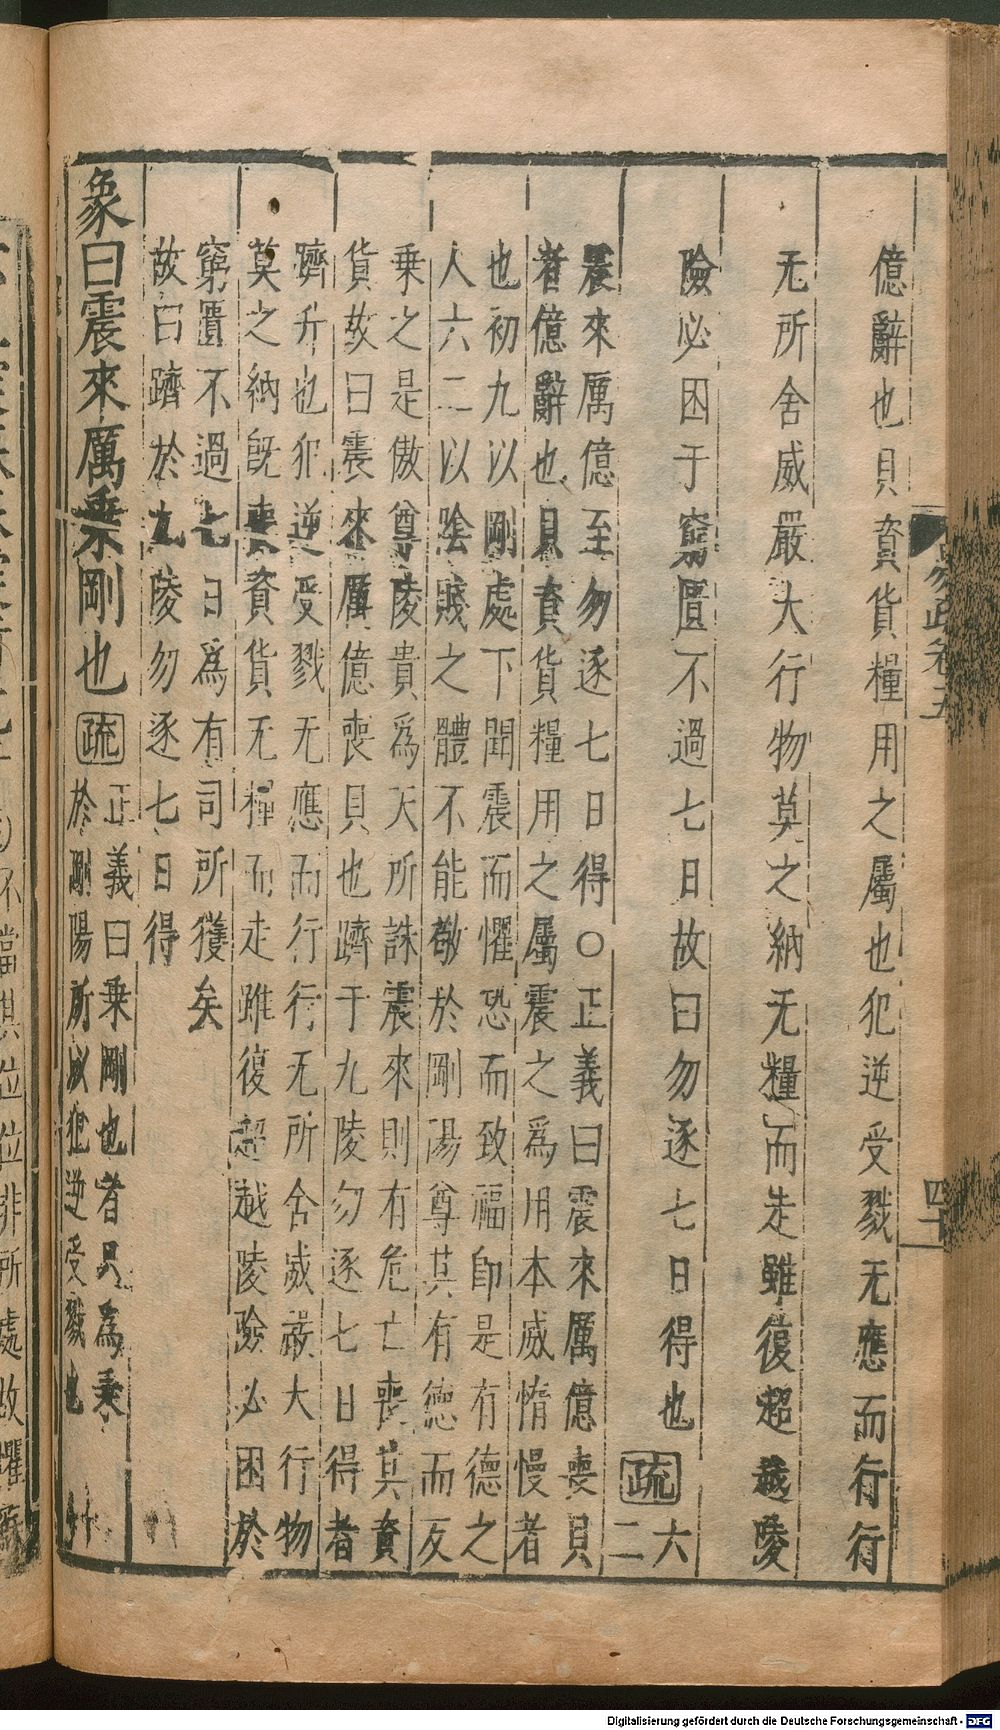 億辭也貝資貨糧用之屬也犯逆受戮无應而行行
无所舍威嚴大行物莫之納无糧而走雖復超越陵
險必困于窮匱不過七日故曰勿逐七日得也疏六二
震來厲億至勿逐七日得○正義曰震來厲億喪貝
者億辭也貝資貨糧用之屬震之為用本威惰慢者
也初九以剛處下聞震而懼恐而致福即是有德之
人六二以陰賤之體不能敬於剛陽尊其有德而反
乗之是傲尊陵貴為天所誅震來則有危亡喪其資
貨故曰震來厲億喪貝也躋于九陵勿逐七日得者
躋升也犯逆受戮无應而行行无所舍威嚴大行物
莫之納既喪資貨无糧而走雖復超越陵險必困於
窮匱不過七日為有司所獲矣
故曰躋於九陵勿逐七日得
象曰震來厲乗剛也疏正義曰乗剛也者只為乗
於剛陽所以犯逆受戮也
易疏卷五
四十
不當其位位非所處故懼
Digitalisierung gefördert durch die Deutsche Forschungsgemeinschaft - DFG